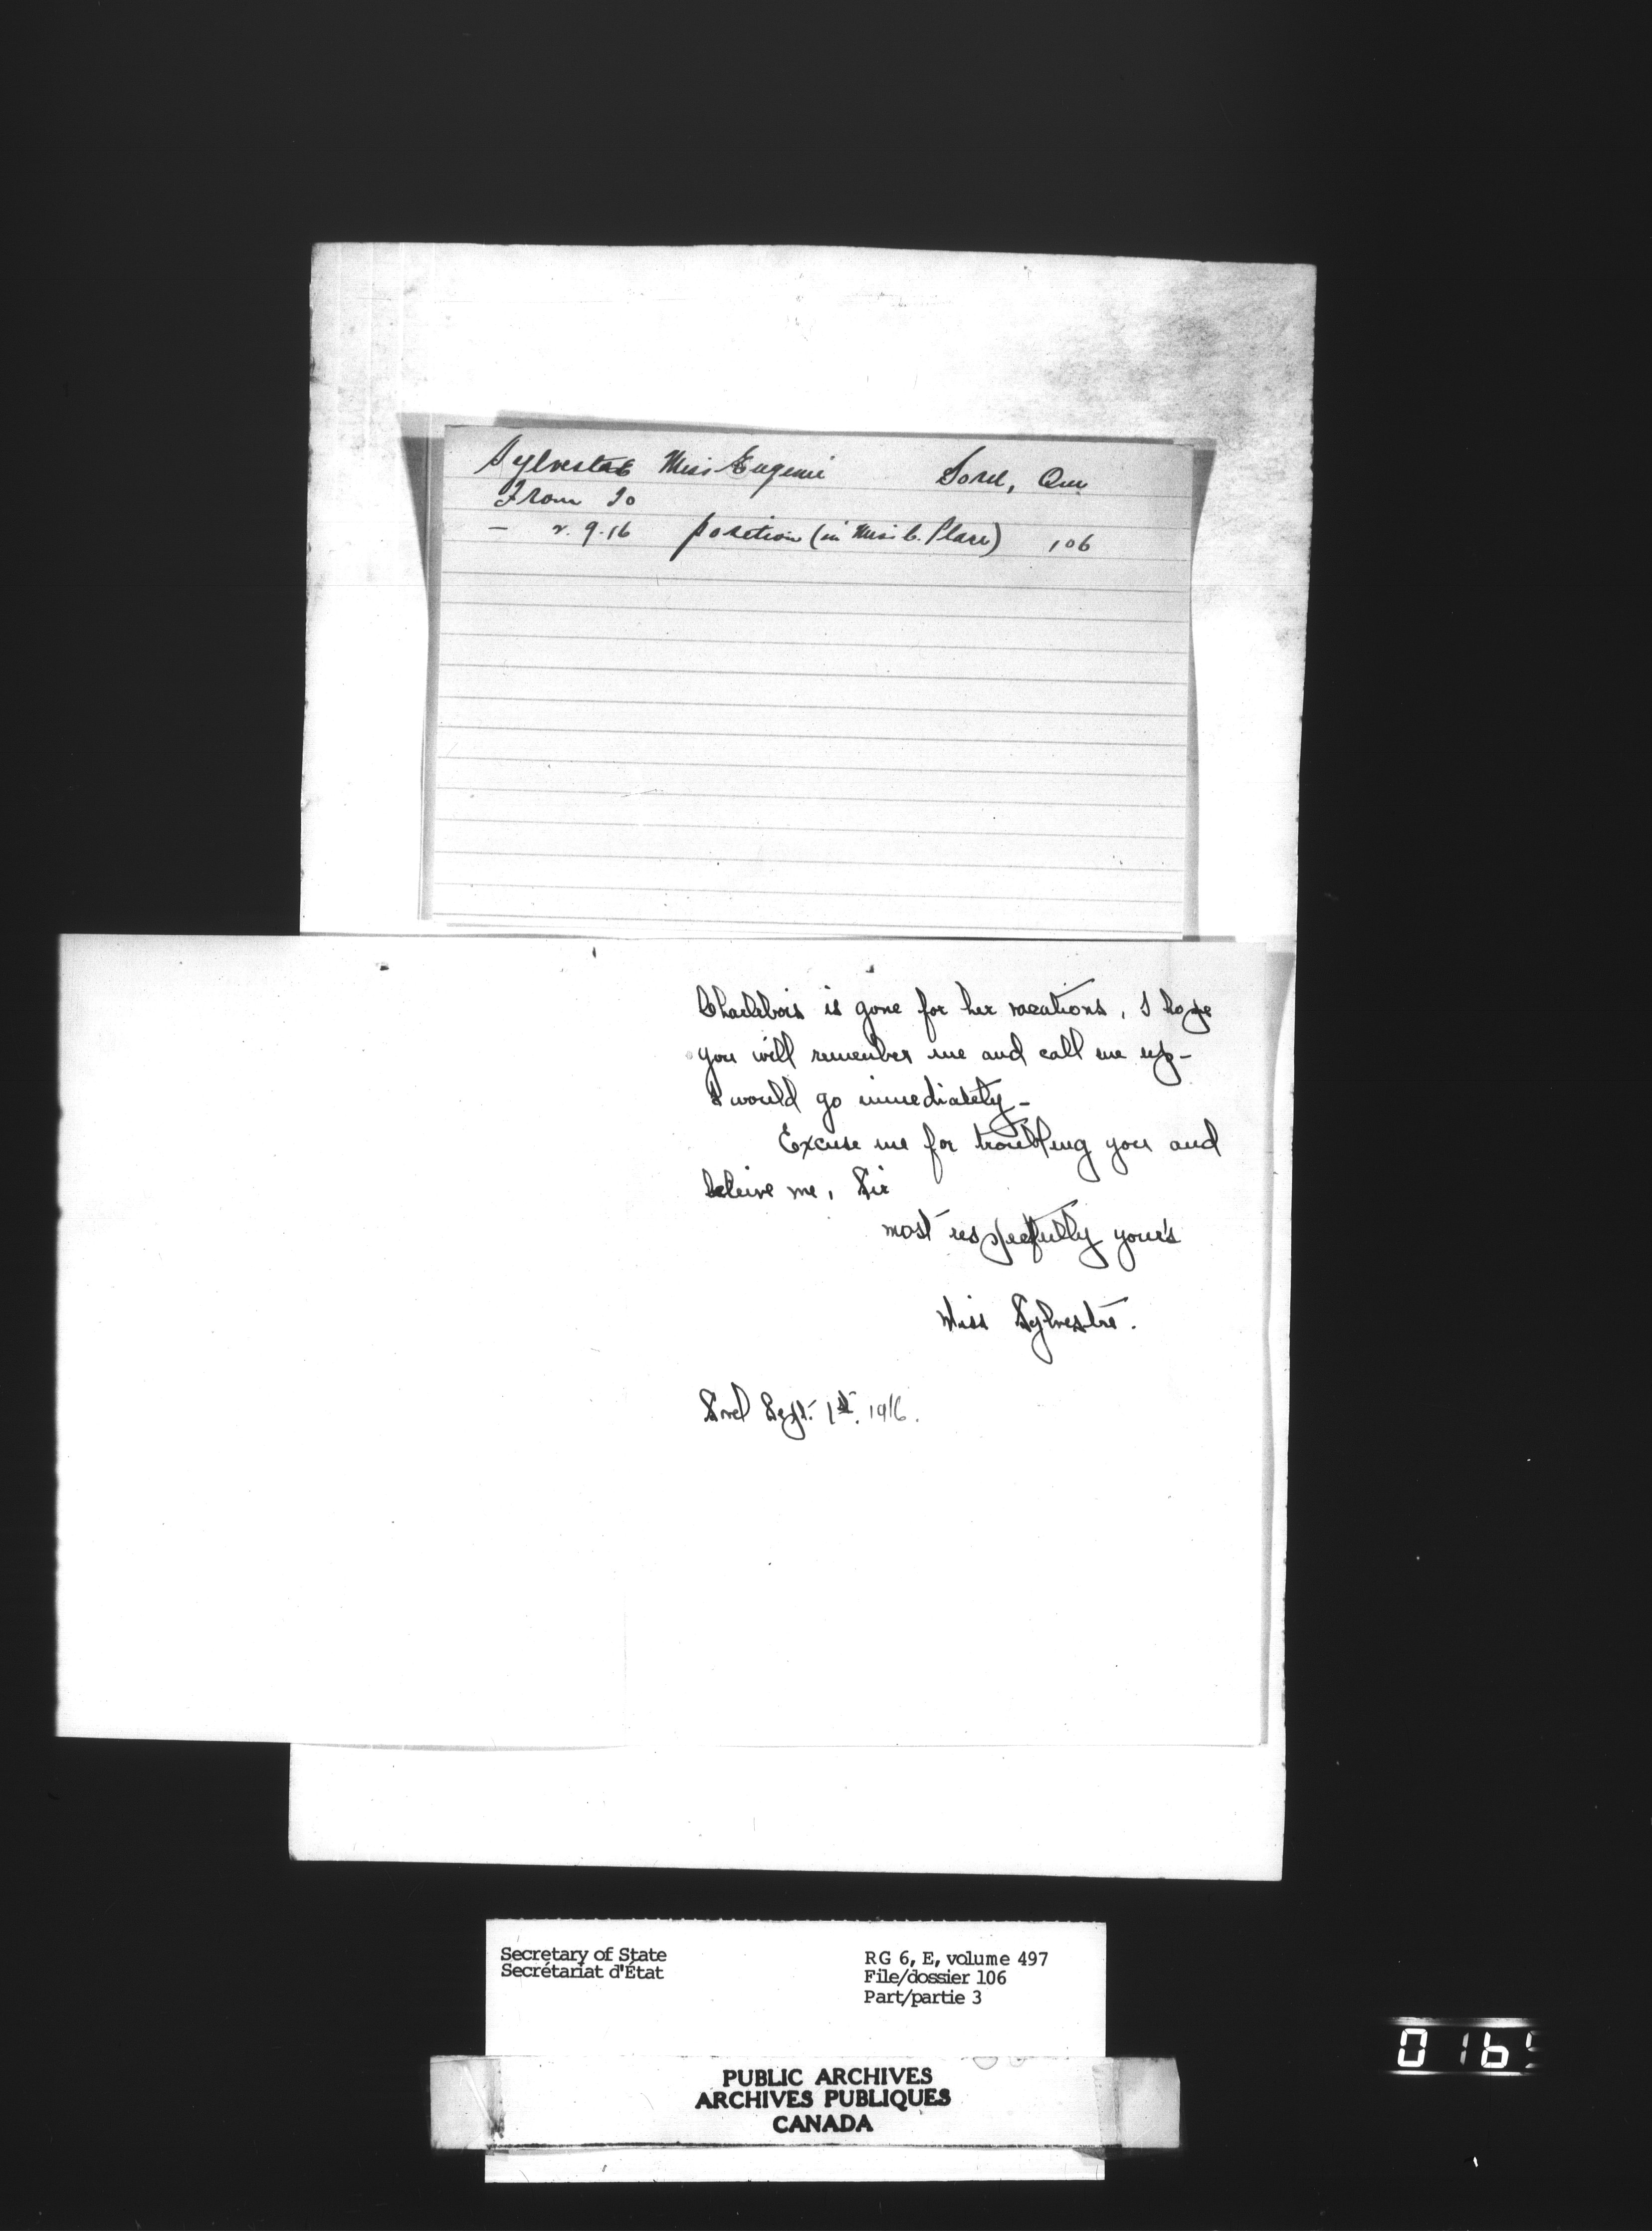 Sylvestre Miss Eugenie Sorel, Que
From To
— 2.9.16 position (in Miss C. Place) 106
Charlebois is gone for her vacations, I hope
you will remember me and call me up-
I would go immediately-
Excuse me for troubling you and
beleive me, Sir
most respectfully your's
Miss Sylvestre.
Sorel Sept. 1st. 1916.
Secretary of State
Secrétariat d'État
RG 6, E, volume 497
File/dossier 106
Part/partie 3
PUBLIC ARCHIVES
ARCHIVES PUBLIQUES
CANADA
0165